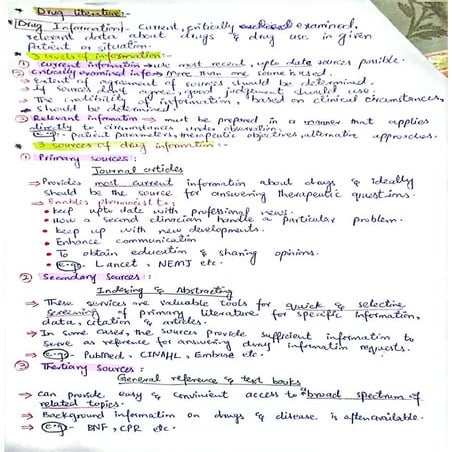 * Drug Literature:-
* Drug Information:- Current, critically examined,
relevant data about drugs & drug use in given
Patient or situation.
* 3 levels of information:-
① current information → use most recent, upto date sources possible.
② Critically examined info → More than one source is used.
→ Extent of agreement of sources should be determined.
→ If sources didn't agree, good judgement should use.
→ The credibility of information, based on clinical circumstances,
should be determined.
③ Relevant information → must be prepared in a manner that applies
directly to circumstances under observation.
e.g:- patient parameters, therapeutic objectives, alternative approaches.
* 3 sources of drug information:-
① Primary sources:
Journal articles
→ Provides most current information about drugs & ideally
should be the source for answering therapeutic questions.
→ Enables pharmacist to;
• keep upto date with professional news.
• How a second clinician handle a particular problem.
• keep up with new developments.
• Enhance communication
• To obtain education & sharing opinions.
→ e.g:- Lancet, NEMJ etc.
② Secondary sources:
Indexing & Abstracting
→ These services are valuable tools for quick & selective
screening of primary literature for specific information,
data, citation & articles.
→ In some cases, the sources provide sufficient information to
serve as reference for answering drug information requests.
→ e.g:- PubMed, CINAHL, Embase etc.
③ Thertiary sources:
General reference & text books
→ can provide easy & convinient access to broad spectrum of
related topics.
→ Background information on drugs & disease is often available.
→ e.g:- BNF, CPR etc.